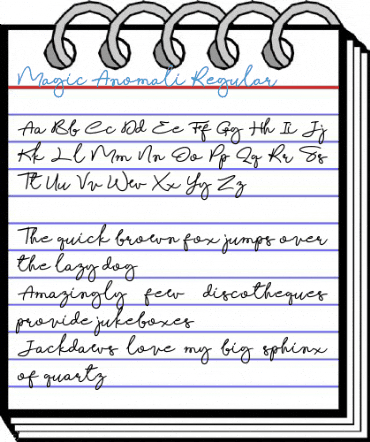 Magic Anomali Regular
Aa Bb Cc Dd Ee Ff Gg Hh Ii Jj
Kk Ll Mm Nn Oo Pp Qq Rr Ss
Tt Uu Vv Ww Xx Yy Zz
The quick brown fox jumps over
the lazy dog
Amazingly few discotheques
provide jukeboxes
Jackdaws love my big sphinx
of quartz